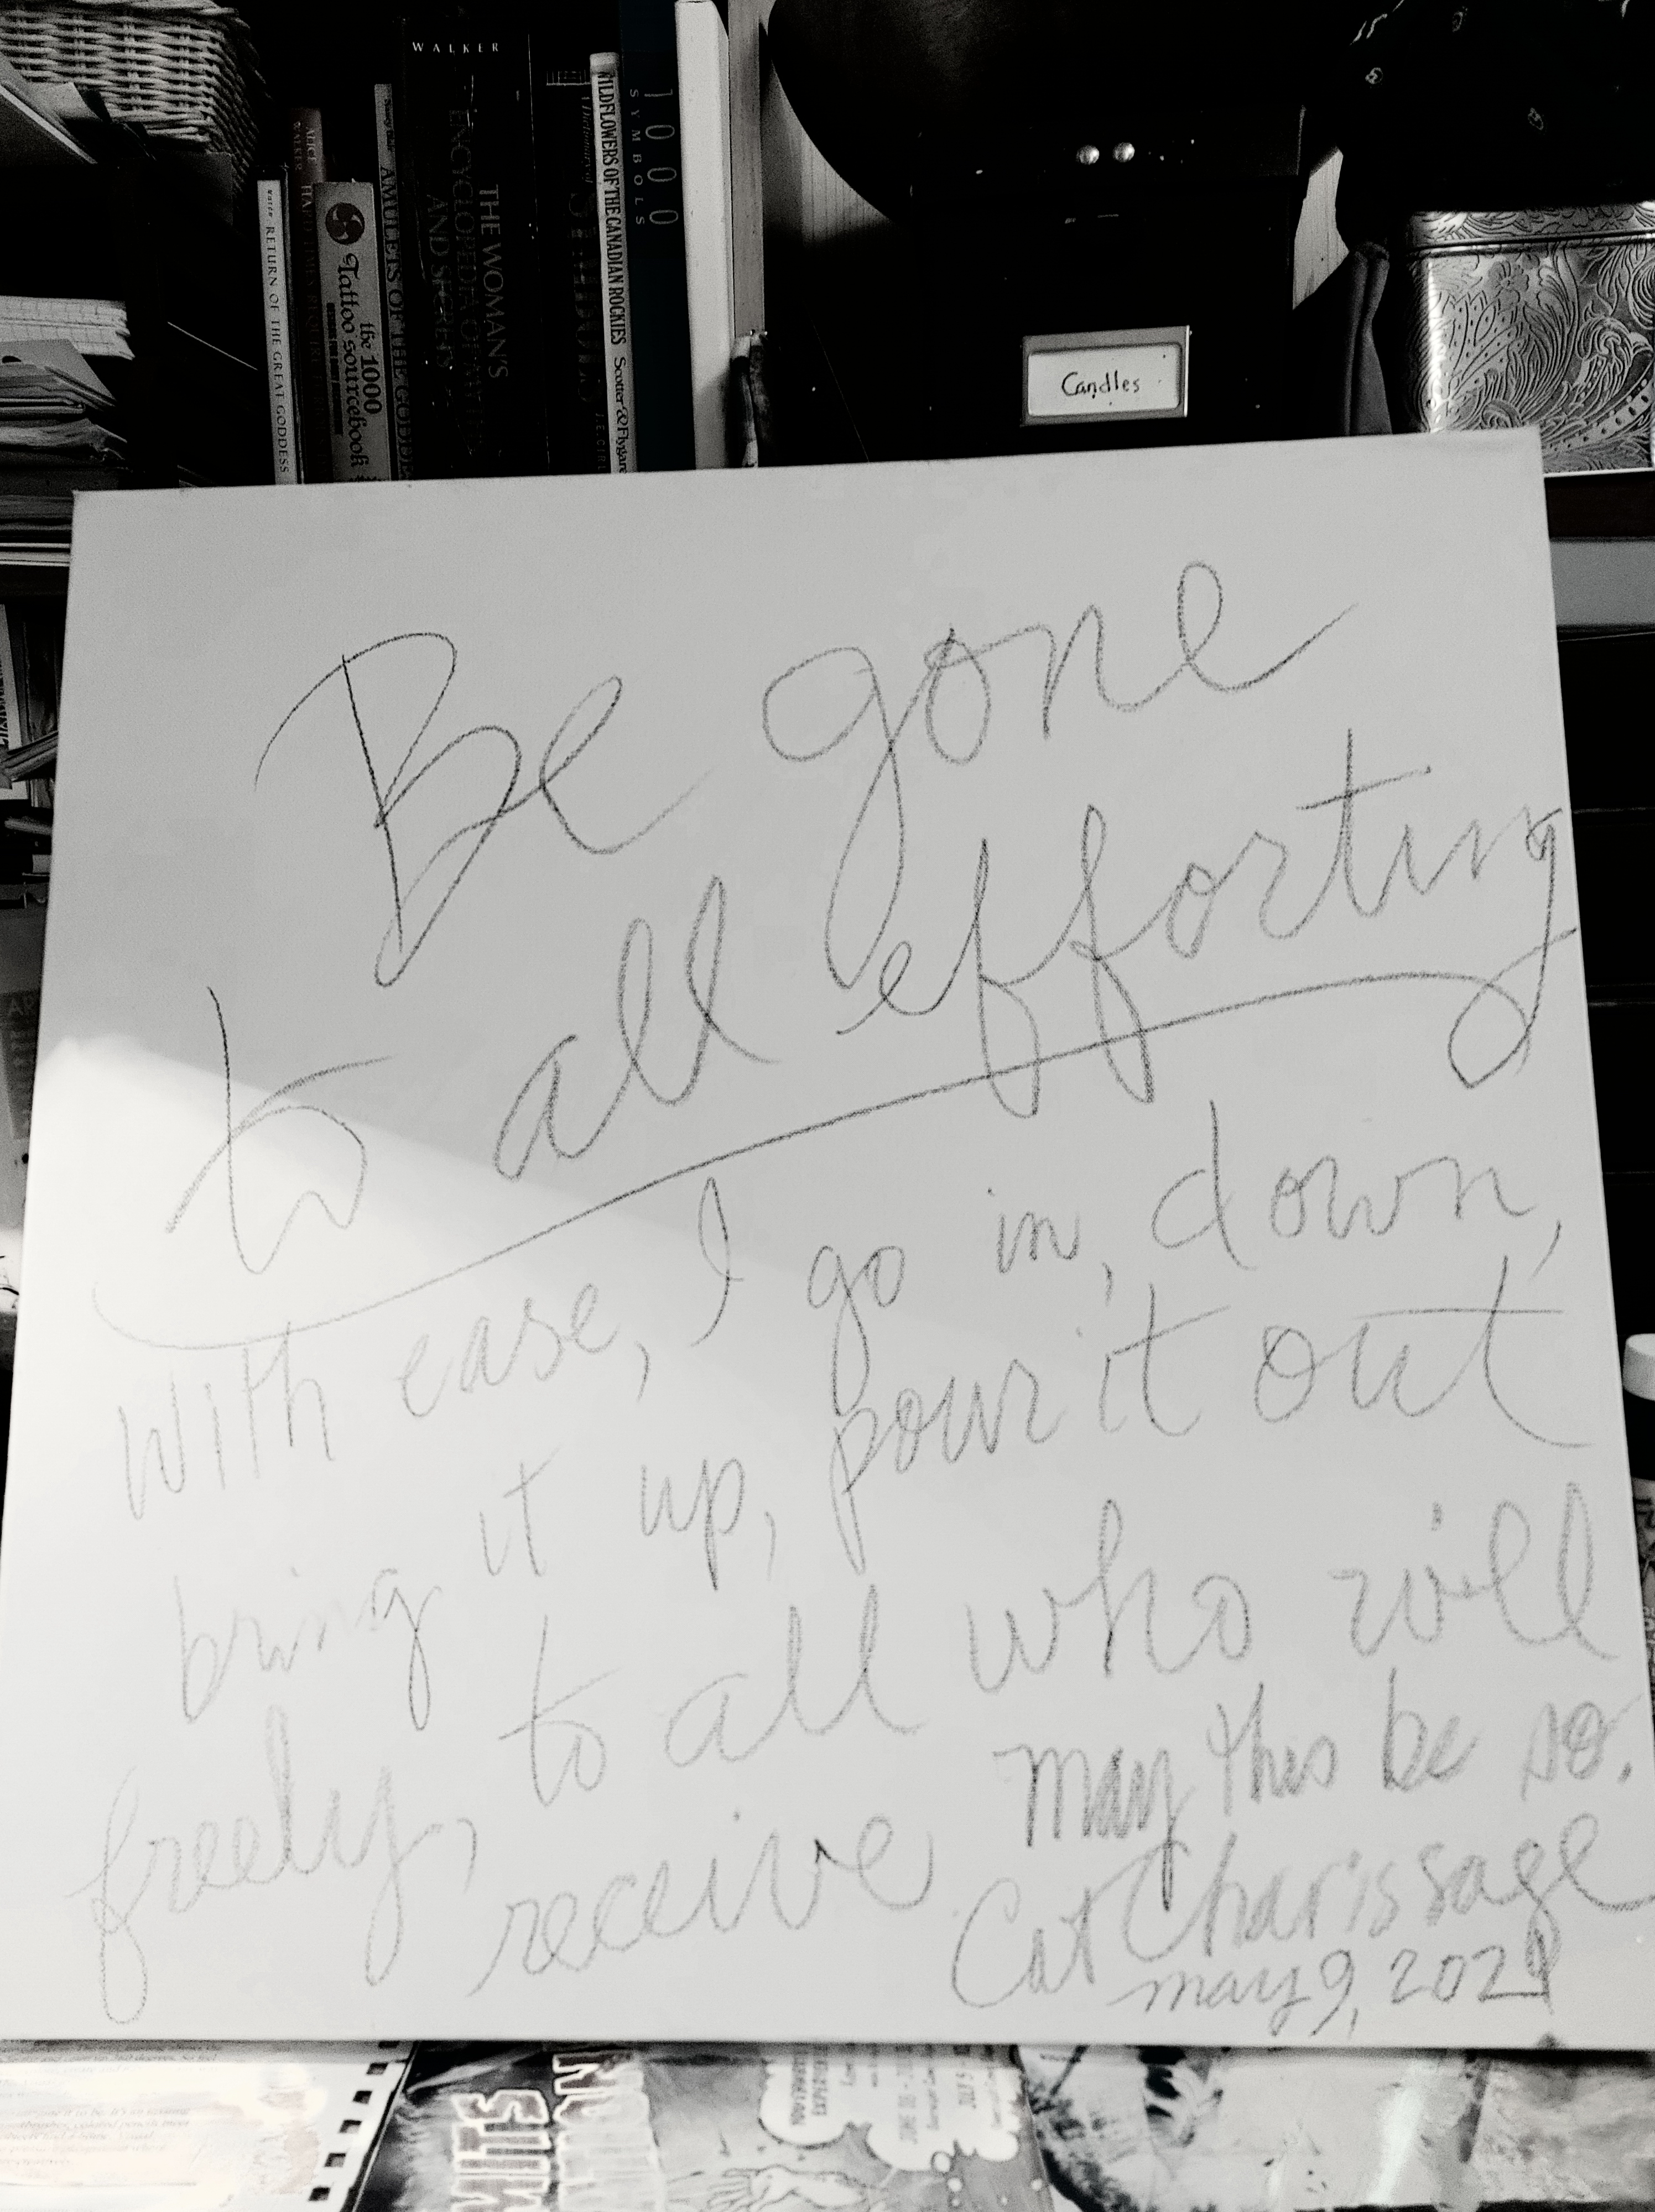 WALKER
THE WOMAN'S
ENCYCLOPEDIA OF MYTHS
AND SECRETS
RETURN OF THE GREAT GODDESS
ALICE
WALKER
the 1000
Tattoo sourcebook
AMULETS OF THE GODDESS
Dictionary of
WILDFLOWERS OF THE CANADIAN ROCKIES Scotter & Flygare
1000
SYMBOLS
Candles
Be gone
to all efforting
with ease, I go in, down,
bring it up, pour it out
freely, to all who will
receive
may this be so.
Cat Charissage
may 9, 2021